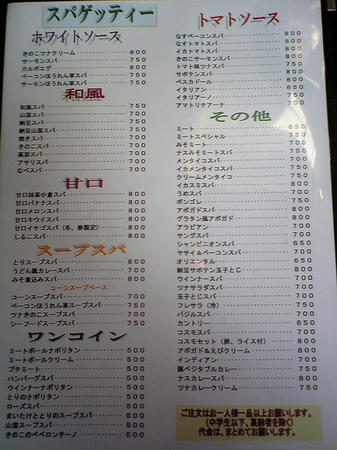 スパゲッティー
ホワイトソース
きのこツナクリーム 800
サーモンスパ 750
カルボエグ 800
ベーコンほうれん草スパ 750
サーモンほうれん草スパ 750
和風
和風スパ 750
山菜スパ 700
納豆スパ 700
納豆山菜スパ 750
焼きスパ 700
きのこスパ 700
高菜スパ 700
アサリスパ 750
なべスパ 700
甘口
甘口抹茶小倉スパ
甘口バナナスパ
甘口メロンスパ
甘口キウイスパ
甘口イチゴスパ（冬、春限定）
しるこスパ
スープスパ
とりスープスパ
うどん風カレースパ
みそ煮込みスパ
コーンスープベース
コーンスープスパ
ベーコンほうれん草スープスパ
ツナきのこスープスパ
シーフードスープスパ
ワンコイン
ミートボールナポリタン 500
ミートボールクリーム 500
プチミート 500
ハンバーグスパ 500
ウインナーナポリタン 500
とりのナポリタン 500
ローズスパ 500
まいたけととりのスープスパ 500
山菜スープスパ 500
きのこのペペロンチーノ 500
トマトソース
なすベーコンスパ 800
なすトマトスパ
イカトマトスパ
きのこサーモンスパ
トマト味ツナスパ
サボテンスパ
ペスカドール
イタリアン
イタリアーノ
アマトリチアーナ
その他
ミート 650
ミートスペシャル
みそミート
ナスみそミートスパ
メンタイコスパ
イカメンタイコスパ
クリームメンタイコ
イカスミスパ
うめスパ
ボンゴレ
アボガドスパ
グラタン風アボガド
アラビアン
ヤングスパ
シャンピニオンスパ
ヤサイ&ベーコンスパ
オリエンタル
納豆サボテン玉子とじ
ウインナースパ
ツナサラダスパ
玉子とじスパ
フレサラ（冷）
バジルスパ
カントリー
コスモスパ
コスモセット（豚、ライス付）
アボガド&えびクリーム
インディアン
豚ベジタブルカレー
ナスカレースパ
ツナカレークリーム
ご注文はお一人様一品以上お願いします。
（中学生以下、高齢者を除く）
代金は、まとめてお願いします。